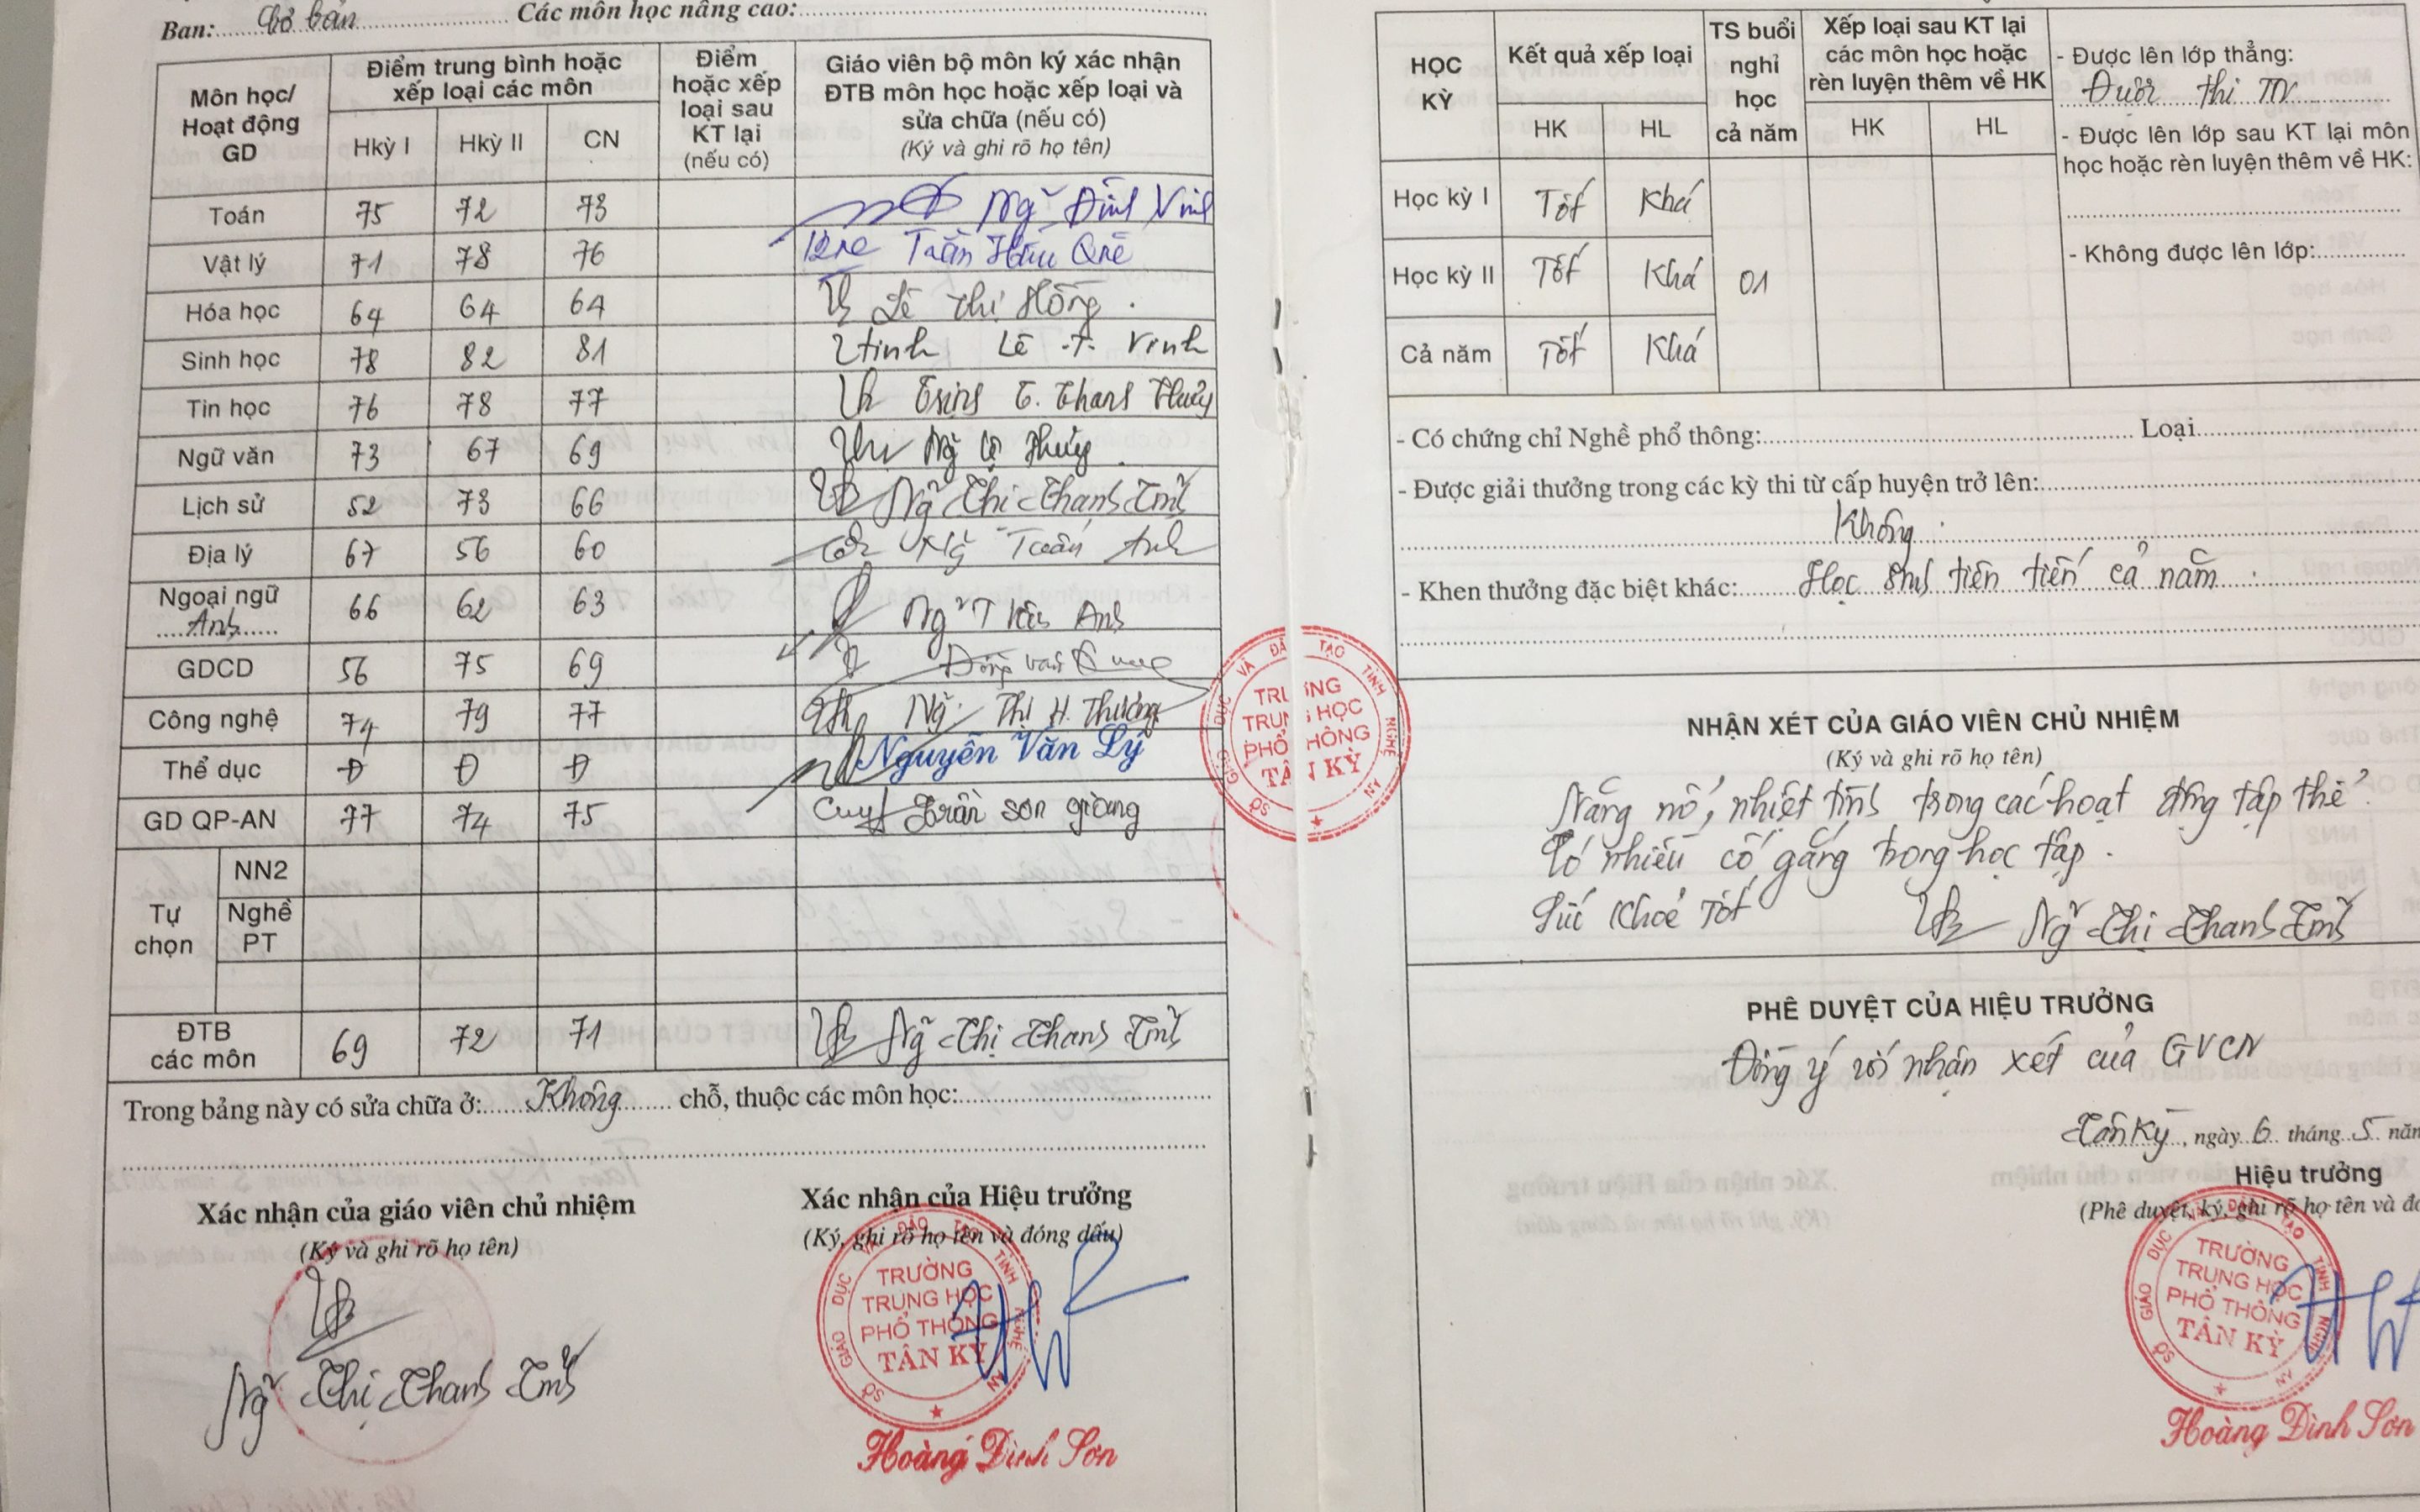 Ban: Cơ bản Các môn học nâng cao:
Môn học/ Hoạt động GD
Điểm trung bình hoặc xếp loại các môn
Hkỳ I Hkỳ II CN
Điểm hoặc xếp loại sau KT lại (nếu có)
Giáo viên bộ môn ký xác nhận ĐTB môn học hoặc xếp loại và sửa chữa (nếu có)
(Ký và ghi rõ họ tên)
Toán 75 72 73 Ng̃ Đình Vinh
Vật lý 71 78 76 Trần Hữu Quê
Hóa học 64 64 64 Lê Thị Hồng
Sinh học 78 82 81 Lê T. Vinh
Tin học 76 78 77 Trịnh T. Thanh Thủy
Ngữ văn 73 67 69 Thủy
Lịch sử 52 73 66 Ng̃ Thị Thanh
Địa lý 67 56 60 Tuấn Anh
Ngoại ngữ Anh 66 62 63 Anh
GDCD 56 75 69
Công nghệ 74 79 77 Ng̃ Thị H. Thương
Thể dục Đ Đ Đ Nguyễn Văn Lý
GD QP-AN 77 74 75 Trần Sơn Giang
Tự chọn
NN2
Nghề PT
ĐTB các môn 69 72 71 Ng̃ Thị Thanh
Trong bảng này có sửa chữa ở: Không chỗ, thuộc các môn học:
Xác nhận của giáo viên chủ nhiệm
(Ký và ghi rõ họ tên)
Ng̃ Thị Thanh
Xác nhận của Hiệu trưởng
(Ký, ghi rõ họ tên và đóng dấu)
SỞ GIÁO DỤC VÀ ĐÀO TẠO TỈNH NGHỆ AN
TRƯỜNG
TRUNG HỌC
PHỔ THÔNG
TÂN KỲ
Hoàng Đình Sơn
HỌC KỲ
Kết quả xếp loại
HK HL
TS buổi nghỉ học cả năm
Xếp loại sau KT lại các môn học hoặc rèn luyện thêm về HK
HK HL
Học kỳ I Tốt Khá
Học kỳ II Tốt Khá 01
Cả năm Tốt Khá
- Được lên lớp thẳng:
Được thi TN
- Được lên lớp sau KT lại môn
học hoặc rèn luyện thêm về HK:
- Không được lên lớp:
- Có chứng chỉ Nghề phổ thông: Loại
- Được giải thưởng trong các kỳ thi từ cấp huyện trở lên:
Không
- Khen thưởng đặc biệt khác: Học sinh tiên tiến cả năm.
SỞ GIÁO DỤC VÀ ĐÀO TẠO TỈNH NGHỆ AN
TRƯỜNG
TRUNG HỌC
PHỔ THÔNG
TÂN KỲ
NHẬN XÉT CỦA GIÁO VIÊN CHỦ NHIỆM
(Ký và ghi rõ họ tên)
Năng nổ, nhiệt tình trong các hoạt động tập thể.
Có nhiều cố gắng trong học tập.
Sức khoẻ Tốt
Ng̃ Thị Thanh
PHÊ DUYỆT CỦA HIỆU TRƯỞNG
Đồng ý với nhận xét của GVCN
Tân Kỳ, ngày 6 tháng 5 năm
Hiệu trưởng
(Phê duyệt, ký, ghi rõ họ tên và đó
SỞ GIÁO DỤC VÀ ĐÀO TẠO TỈNH NGHỆ AN
TRƯỜNG
TRUNG HỌC
PHỔ THÔNG
TÂN KỲ
Hoàng Đình Sơn